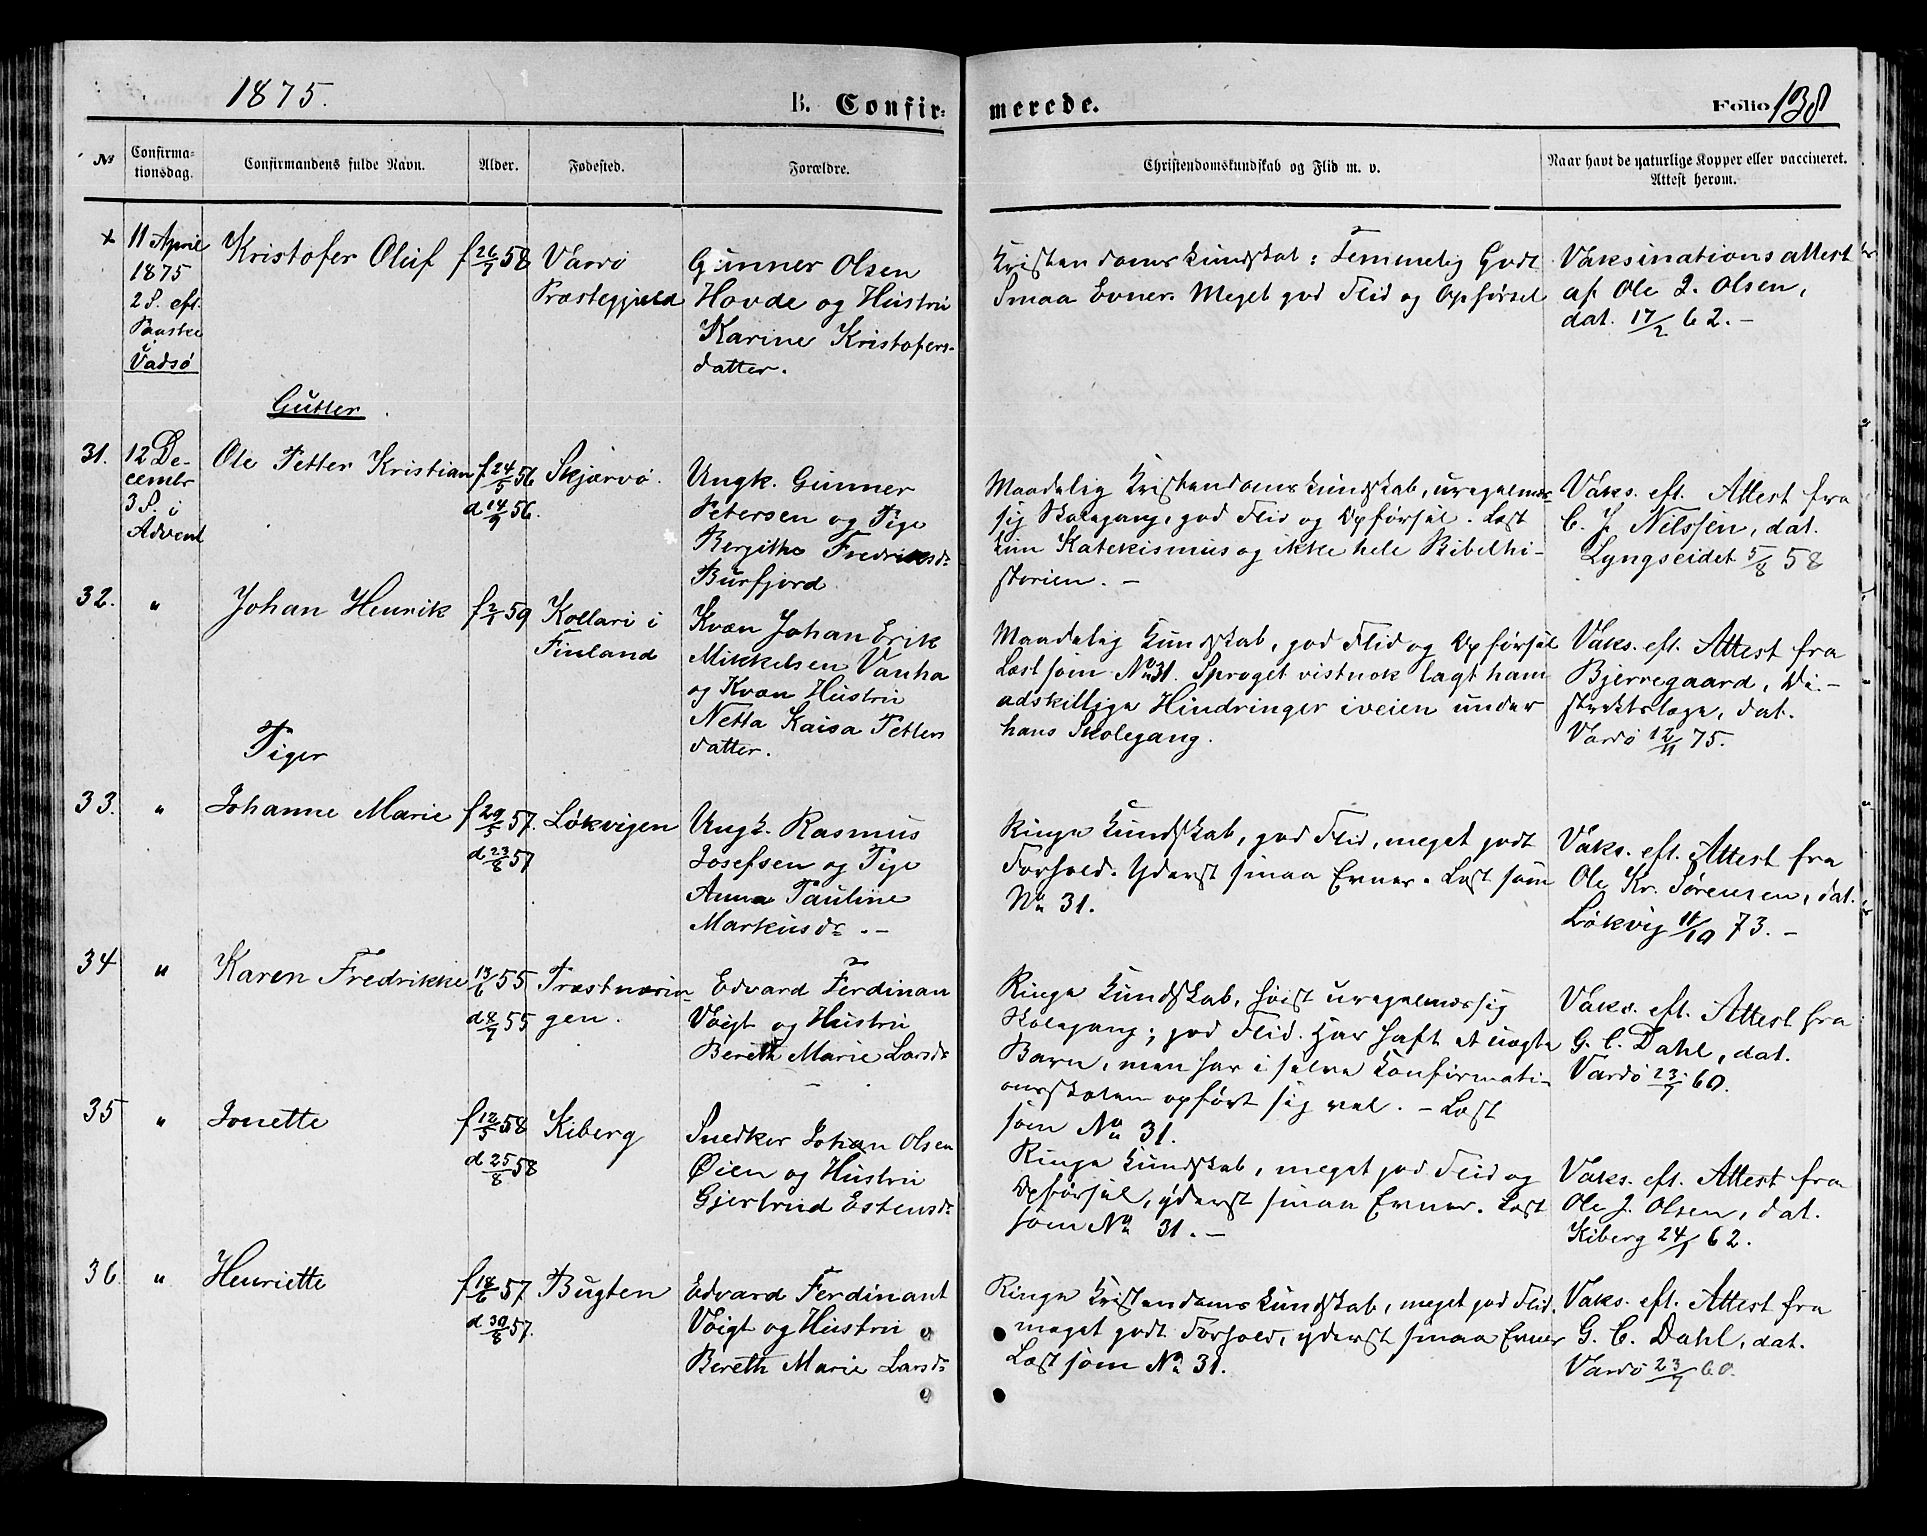 1875.
B. Confir-
merede.
Folio 138
No
Confirma-
tionsdag.
Confirmandens fulde Navn.
Alder.
Fødested.
Forældre.
Christendomskundskab og Flid m. v.
Naar havt de naturlige Kopper eller vaccineret.
Attest herom.
+
11 April
1875
2 S. eft.
Paaske
Vadsø
Kristofer Oluf
f 26/7 58
Vardø
Præstegjæld
Gunner Olsen
Hovde og Hustru
Karine Kristofers-
datter.
Kristendomskundskab: Temmelig Godt
Smaa Evner. Meget god Flid og Opførsel
Vaksinationsattest
af Ole J. Olsen,
dat. 17/2 62.-
Gutter
31.
12 De-
cembr
3 S. i
Advent
Ole Petter Kristian
f 24/5 56
d 14/9 56.
Skjærvø.
Ungk. Gunner
Petersen og Pige
Bergithe Fredriksdr
Burfjord
Maadelig Kristendomskundskab, uregelmæs-
sig Skolegang, god Flid og Opførsel. Læst
kun Katekismus og ikke hele Bibelhi-
storien. -
Vaks. eft. Attest fra
C. J. Nilssen, dat.
Lyngseidet 5/8 58
32.
"
Johan Henrik
f 2/1 59
Kollari i
Finland
Kvæn Johan Erik
Mikkelsen Vanha
og Kvæn Hustru
Netta Kaisa Petters
datter.
Maadelig Kundskab, god Flid og Opførsel
Læst som No 31. Sproget vistnok lagt ham
adskillige Hindringer iveien under
hans Skolegang.
Vaks. eft. Attest fra
Bjerregaard, Di-
striktslæge, dat.
Vardø 12/11 75.
Piger
33.
"
Johanne Marie
f 29/5 57.
d 23/8 57
Løkvigen
Ungk. Rasmus
Josefsen og Pige
Anna Pauline
Markusdr.-
Ringe Kundskab, god Flid, meget godt
Forhold. Yderst smaa Evner. Læst som
No 31.
Vaks. eft. Attest fra
Ole Kr. Sørensen, dat.
Løkvig 11/10 73.-
34
"
Karen Fredrikke
13/6 55
d 8/7 55
Præstnærin-
gen.
Edvard Ferdinan
Voigt og Hustru
Bereth Marie Larsdr
-
Ringe Kundskab, høist uregelmæssig
Skolegang; god Flid. Har havt et uægte
Barn, men har i selve Konfirmati-
onsskolen opført sig vel. - Læst
som No 31.
Vaks. eft. Attest fra
G. C. Dahl, dat.
Vardø 23/7 60.
35
"
Jonette
f 12/5 58
d 25/8 58
Kiberg
Snedker Johan Olsen
Øien og Hustru
Gjertrud Estensdr
Ringe Kundskab, meget god Flid og
Opførsel, yderst smaa Evner. Læst
som No 31.-
Vaks. eft. Attest fra
Ole J. Olsen, dat.
Kiberg 24/1 62.
36
"
Henriette
f 14/6 57
d 30/8 57.
Bugten
Edvard Ferdinant
Voigt og Hustru
Bereth Marie Larsdr
Ringe Kristendomskundskab, meget god Flid,
meget godt Forhold, yderst smaa Evner
Læst som No 31.
Vaks. eft. Attest fra
G. C. Dahl, dat.
Vardø 23/7 60.